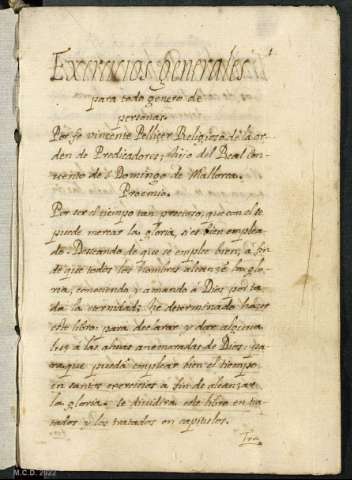 1
Exercicios generales
para todo genero de
personas.
Por fr vincente Pelliçer Religioso de la or-
den de Predicadores; hijo del Real con-
vento de S Domingo de Mallorca.
Proemio.
Por ser el tiempo tan precioso, que con el se
puede mercar la gloria, si es bien emplea-
do. Deseando de que se emplee bien, a fin
de que todos los hombres alcançe la glo-
ria, conociendo y amando â Dios por to-
da la eternidad; he determinado hazer
este libro para declarar y dar alguna
luz â las almas enamoradas de Dios; pa-
ra que puedâ emplear bien el tiempo
en santos exercicios a fin de alcançar
la gloria. se dividira este libro en tra-
tados y los tratados en capitulos.
Tra
M.C.D. 2022